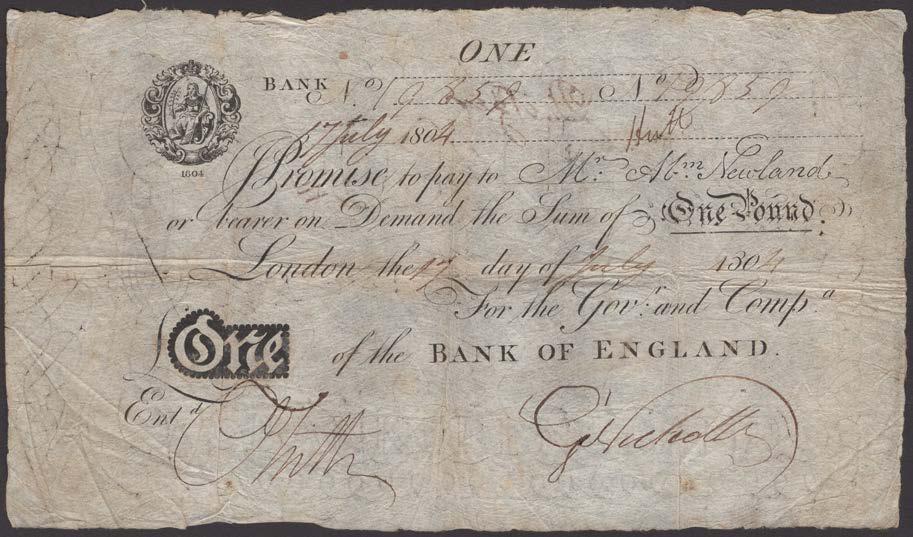 ONE
BANK No. No.
17 July 1804
1804
I Promise to pay to Mr. Abm. Newland
or bearer on Demand the Sum of One Pound.
London the 17 day of July 1804
For the Govr. and Compa.
£ One of the BANK OF ENGLAND.
Entd.